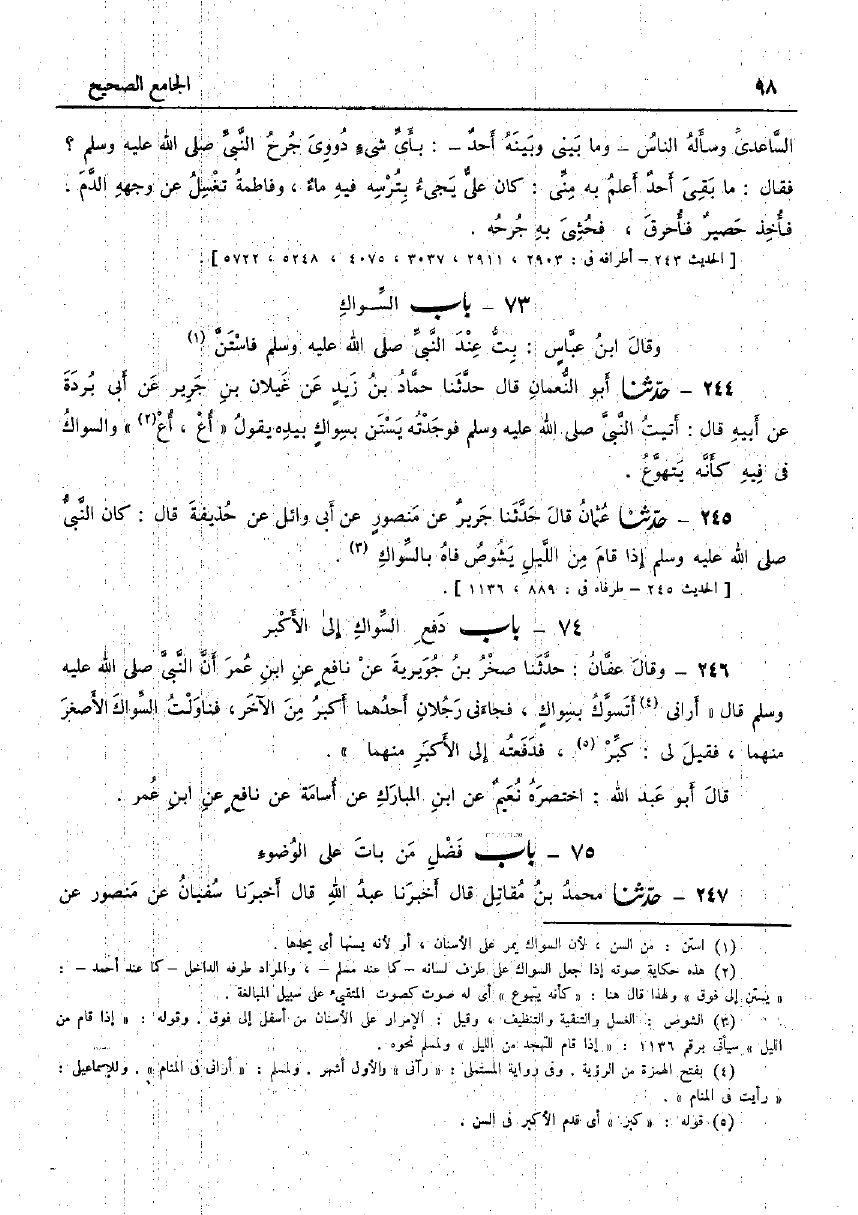 ٩٨ الجامع الصحيح
السَّاعدىَّ وسأَلهُ الناسُ – وما بَينى وبَينَهُ أَحدٌ – : بأَىِّ شىءٍ دُووِىَ جُرحُ النَّبىِّ صلى الله عليه وسلم ؟
فقال : ما بَقِىَ أَحدٌ أَعلمُ به مِنِّى : كان علىٌّ يَجىءُ بِتُرْسِه فيهِ ماءٌ ، وفاطمةُ تَغْسِلُ عن وجههِ الدَّمَ .
فأُخِذ حَصيرٌ فأُحرقَ ، فحُشِىَ بهِ جُرحُه .
[ الحديث ٢٤٣ – أطرافه فى : ٢٩٠٣ ، ٢٩١١ ، ٣٠٣٧ ، ٤٠٧٥ ، ٥٢٤٨ ، ٥٧٢٢ ] .
٧٣ – باب السِّواكِ
وقالَ ابنُ عبَّاسٍ : بِتُّ عِنْدَ النَّبىِّ صلى الله عليه وسلم فاسْتَنَّ (١)
٢٤٤ – حدّثنا أَبو النُّعمانِ قال حدَّثَنا حمَّادُ بنُ زَيدٍ عَن غَيلانَ بنِ جَريرٍ عَن أَبى بُردَةَ
عن أَبيهِ قال : أَتيتُ النَّبىَّ صلى الله عليه وسلم فوجَدْتُه يَسْتَن بسِواكٍ بيدِه يقولُ « أُعْ ، أُعْ(٢) » والسواكُ
فى فِيهِ كأَنَّه يَتهوَّعُ .
٢٤٥ – حدّثنا عُثمانُ قالَ حَدَّثَنا جَريرٌ عن مَنصورٍ عن أَبى وائل عن حُذيفةَ قال : كان النَّبىُّ
صلى الله عليه وسلم إِذا قامَ مِنَ اللَّيلِ يَشُوصُ فاهُ بالسِّواكِ (٣) .
[ الحديث ٢٤٥ – طرفاه فى : ٨٨٩ ، ١١٣٦ ] .
٧٤ – باب دَفعِ السِّواكِ إِلىٰ الأَكْبر
٢٤٦ – وقالَ عفَّانُ : حدَّثَنا صخْرُ بنُ جُوَيريةَ عَنْ نافعٍ عنِ ابنِ عمرَ أَنَّ النَّبىَّ صلى الله عليه
وسلم قال « أَرانى (٤) أَتَسوَّكُ بسِواكٍ ، فجاءَنى رَجُلانِ أَحدُهما أَكبرُ مِنَ الآخَرِ ، فناوَلْتُ السِّواكَ الأَصغرَ
منهما ، فقيلَ لى : كبِّرْ (٥) ، فدَفَعتُه إِلى الأَكبَرِ منهما » .
قالَ أَبو عَبد الله : اختصرَهُ نُعَيمٌ عن ابنِ المباركِ عن أُسامَة عن نافعٍ عنِ ابنِ عُمر .
٧٥ – باب فَضْلِ مَن باتَ على الوُضوءِ
٢٤٧ – حدّثنا محمدُ بنُ مُقاتِلٍ قال أَخبرَنا عبدُ اللهِ قال أَخبرَنا سُفيانُ عن مَنصورٍ عن
(١) استن : من السن ، لأن السواك يمر على الأسنان ، أو لأنه يسنها أى يحدها .
(٢) هذه حكاية صوته إذا جعل السواك على طرف لسانه – كما عند مسلم – ، والمراد طرفه الداخل – كما عند أحمد – :
« يستن إلى فوق » ولهذا قال هنا : « كأنه يتهوع » أى له صوت كصوت المتقيء على سبيل المبالغة .
(٣) الشوص : الغسل والتنقية والتنظيف ، وقيل : الإمرار على الأسنان من أسفل إلى فوق . وقوله : « إذا قام من
الليل » سيأتى برقم ١١٣٦ : « إذا قام للتهجد من الليل » ولمسلم نحوه .
(٤) بفتح الهمزة من الرؤية . وفى رواية المستملى : « رآنى » والأول أشهر . ولمسلم : « أرانى فى المنام » . وللإسماعيلى :
« رأيت فى المنام » .
(٥) قوله : « كبر » أى قدم الأكبر فى السن .